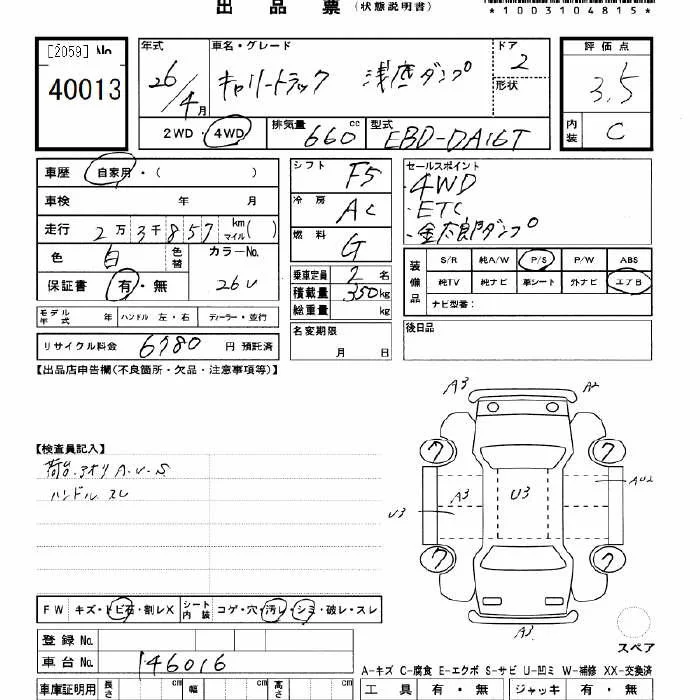 出品票 (状態説明書)
*1003104815*
[2059] No.
40013
年式 26/4月
車名・グレード キャリートラック 浅底ダンプ
ドア 2
形状
評価点 3.5
内装 C
2WD・4WD
排気量 660 cc
型式 EBD-DA16T
車歴 自家用・( )
車検 年 月
走行 2万3千857 km マイル( )
色 白 色替
カラーNo. 26U
保証書 有・無
モデル年式 年 ハンドル 左・右 ディーラー・並行
リサイクル料金 6780 円 預託済
シフト F5
冷房 AC
燃料 G
乗車定員 2名
積載量 350kg
総重量 kg
名変期限
月 日
セールスポイント
・4WD
・ETC
・金太郎ダンプ
装備品
S/R 純A/W P/S P/W ABS
純TV 純ナビ 革シート 外ナビ エアB
ナビ型番:
後日品
【出品店申告欄(不良箇所・欠品・注意事項等)】
【検査員記入】
荷台・アオリ A・U・S
ハンドル スレ
A3 A2
7 7
A3 U3 AU2
U3
7 7
A3
スペア
FW キズ・トビ石・割レX シート内装 コゲ・穴・汚レ・シミ・破レ・スレ
登録 No.
車台 No. 146016
A-キズ C-腐食 E-エクボ S-サビ U-凹ミ W-補修 XX-交換済
車庫証明用 長さ cm 幅 cm 高さ cm
工具 有・無 ジャッキ 有・無